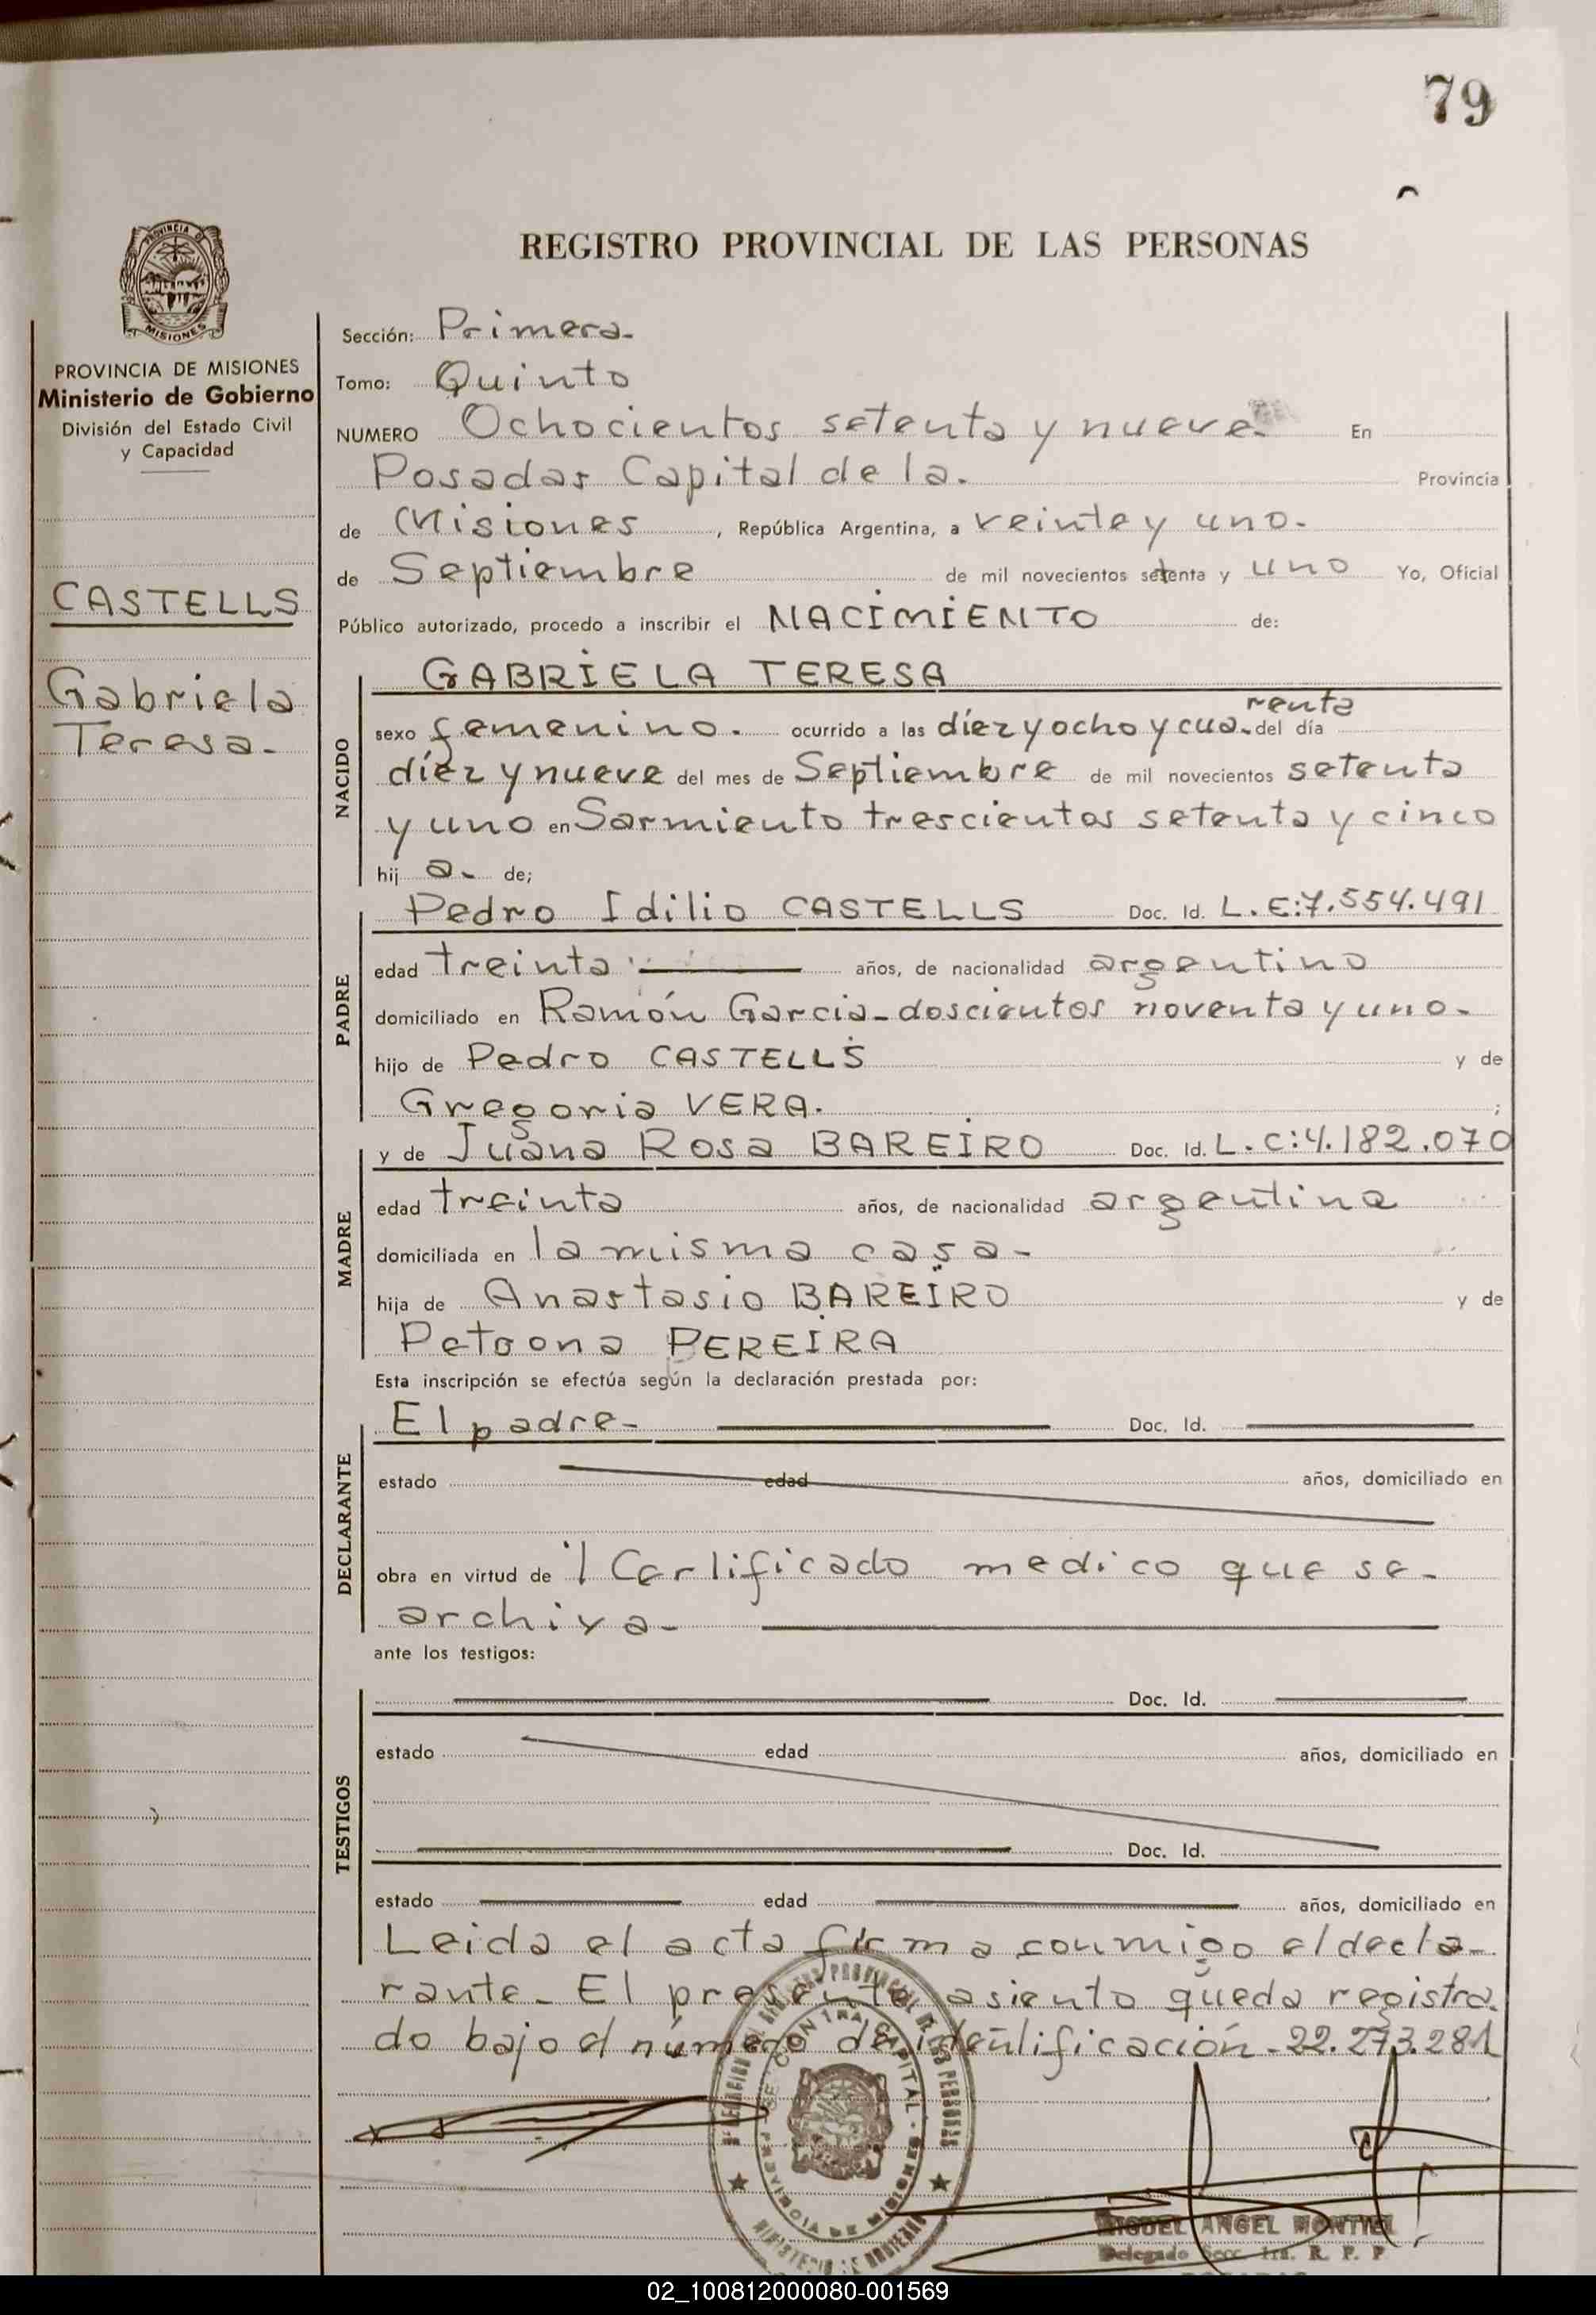 79
REGISTRO PROVINCIAL DE LAS PERSONAS
PROVINCIA DE MISIONES
Ministerio de Gobierno
División del Estado Civil
y Capacidad
CASTELLS
Gabriela
Teresa-
Sección: Primera-
Tomo: Quinto
NUMERO Ochocientos setenta y nueve- En
Posadas Capital de la. Provincia
de Misiones, República Argentina, a veinte y uno-
de Septiembre de mil novecientos setenta y uno Yo, Oficial
Público autorizado, procedo a inscribir el NACIMIENTO de:
NACIDO
GABRIELA TERESA
renta
sexo femenino. ocurrido a las diez y ocho y cua- del día
diez y nueve del mes de Septiembre de mil novecientos setenta
y uno en Sarmiento trescientos setenta y cinco
hij a- de;
PADRE
Pedro Idilio CASTELLS Doc. Id. L.E:7.554.491
edad treinta años, de nacionalidad argentino
domiciliado en Ramón Garcia-doscientos noventa y uno-
hijo de Pedro CASTELLS y de
Gregoria VERA. ;
MADRE
y de Juana Rosa BAREIRO Doc. Id. L.C:4.182.070
edad treinta años, de nacionalidad argentina
domiciliada en la misma casa-
hija de Anastasio BAREIRO y de
Petrona PEREIRA
Esta inscripción se efectúa según la declaración prestada por:
DECLARANTE
El padre- Doc. Id.
estado edad años, domiciliado en
obra en virtud de l Certificado medico que se-
archiva-
ante los testigos:
TESTIGOS
Doc. Id.
estado edad años, domiciliado en
Doc. Id.
estado edad años, domiciliado en
Leida el acta firma conmigo el decla-
rante- El presente asiento queda registra-
do bajo el número de identificación-22.273.281
MIGUEL ANGEL MONTIEL
Delegado Secc. 1ra. R. P. P.
02_100812000080-001569